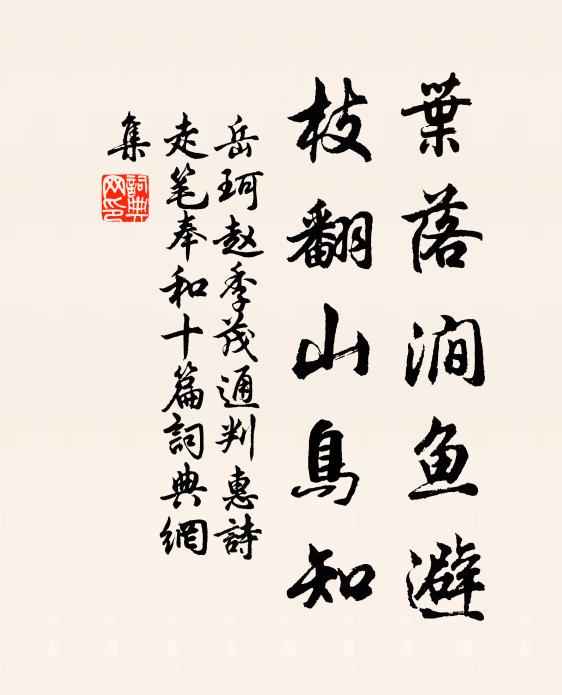 葉落澗鱼避
枝翻山鳥知
岳珂赵季茂通判惠詩
走笔奉和十篇詞典網
集
詞典
网印